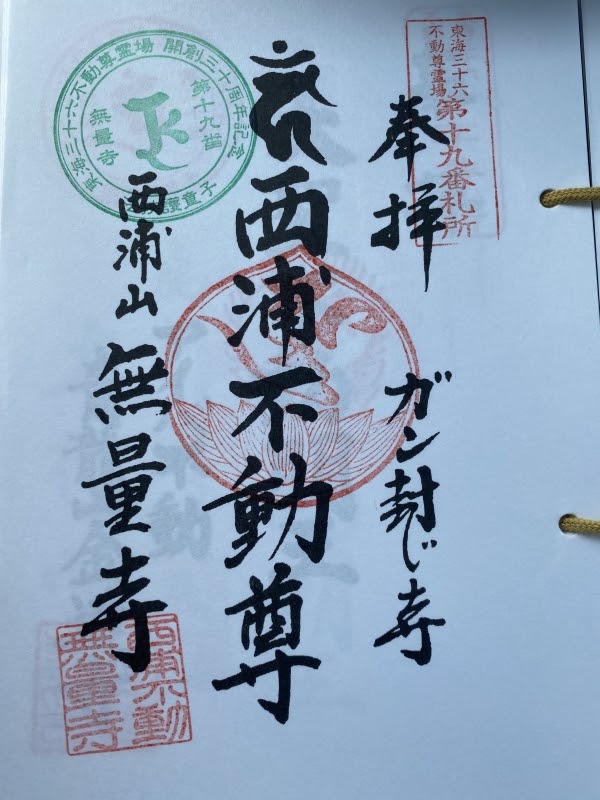 東海三十六
不動尊霊場
第十九番札所
奉拝
ガン封じ寺
西浦不動尊
東海三十六不動尊霊場 開創三十周年記念
第十九番
無量寺
護童子
西浦山
無量寺
西浦不動
無量寺